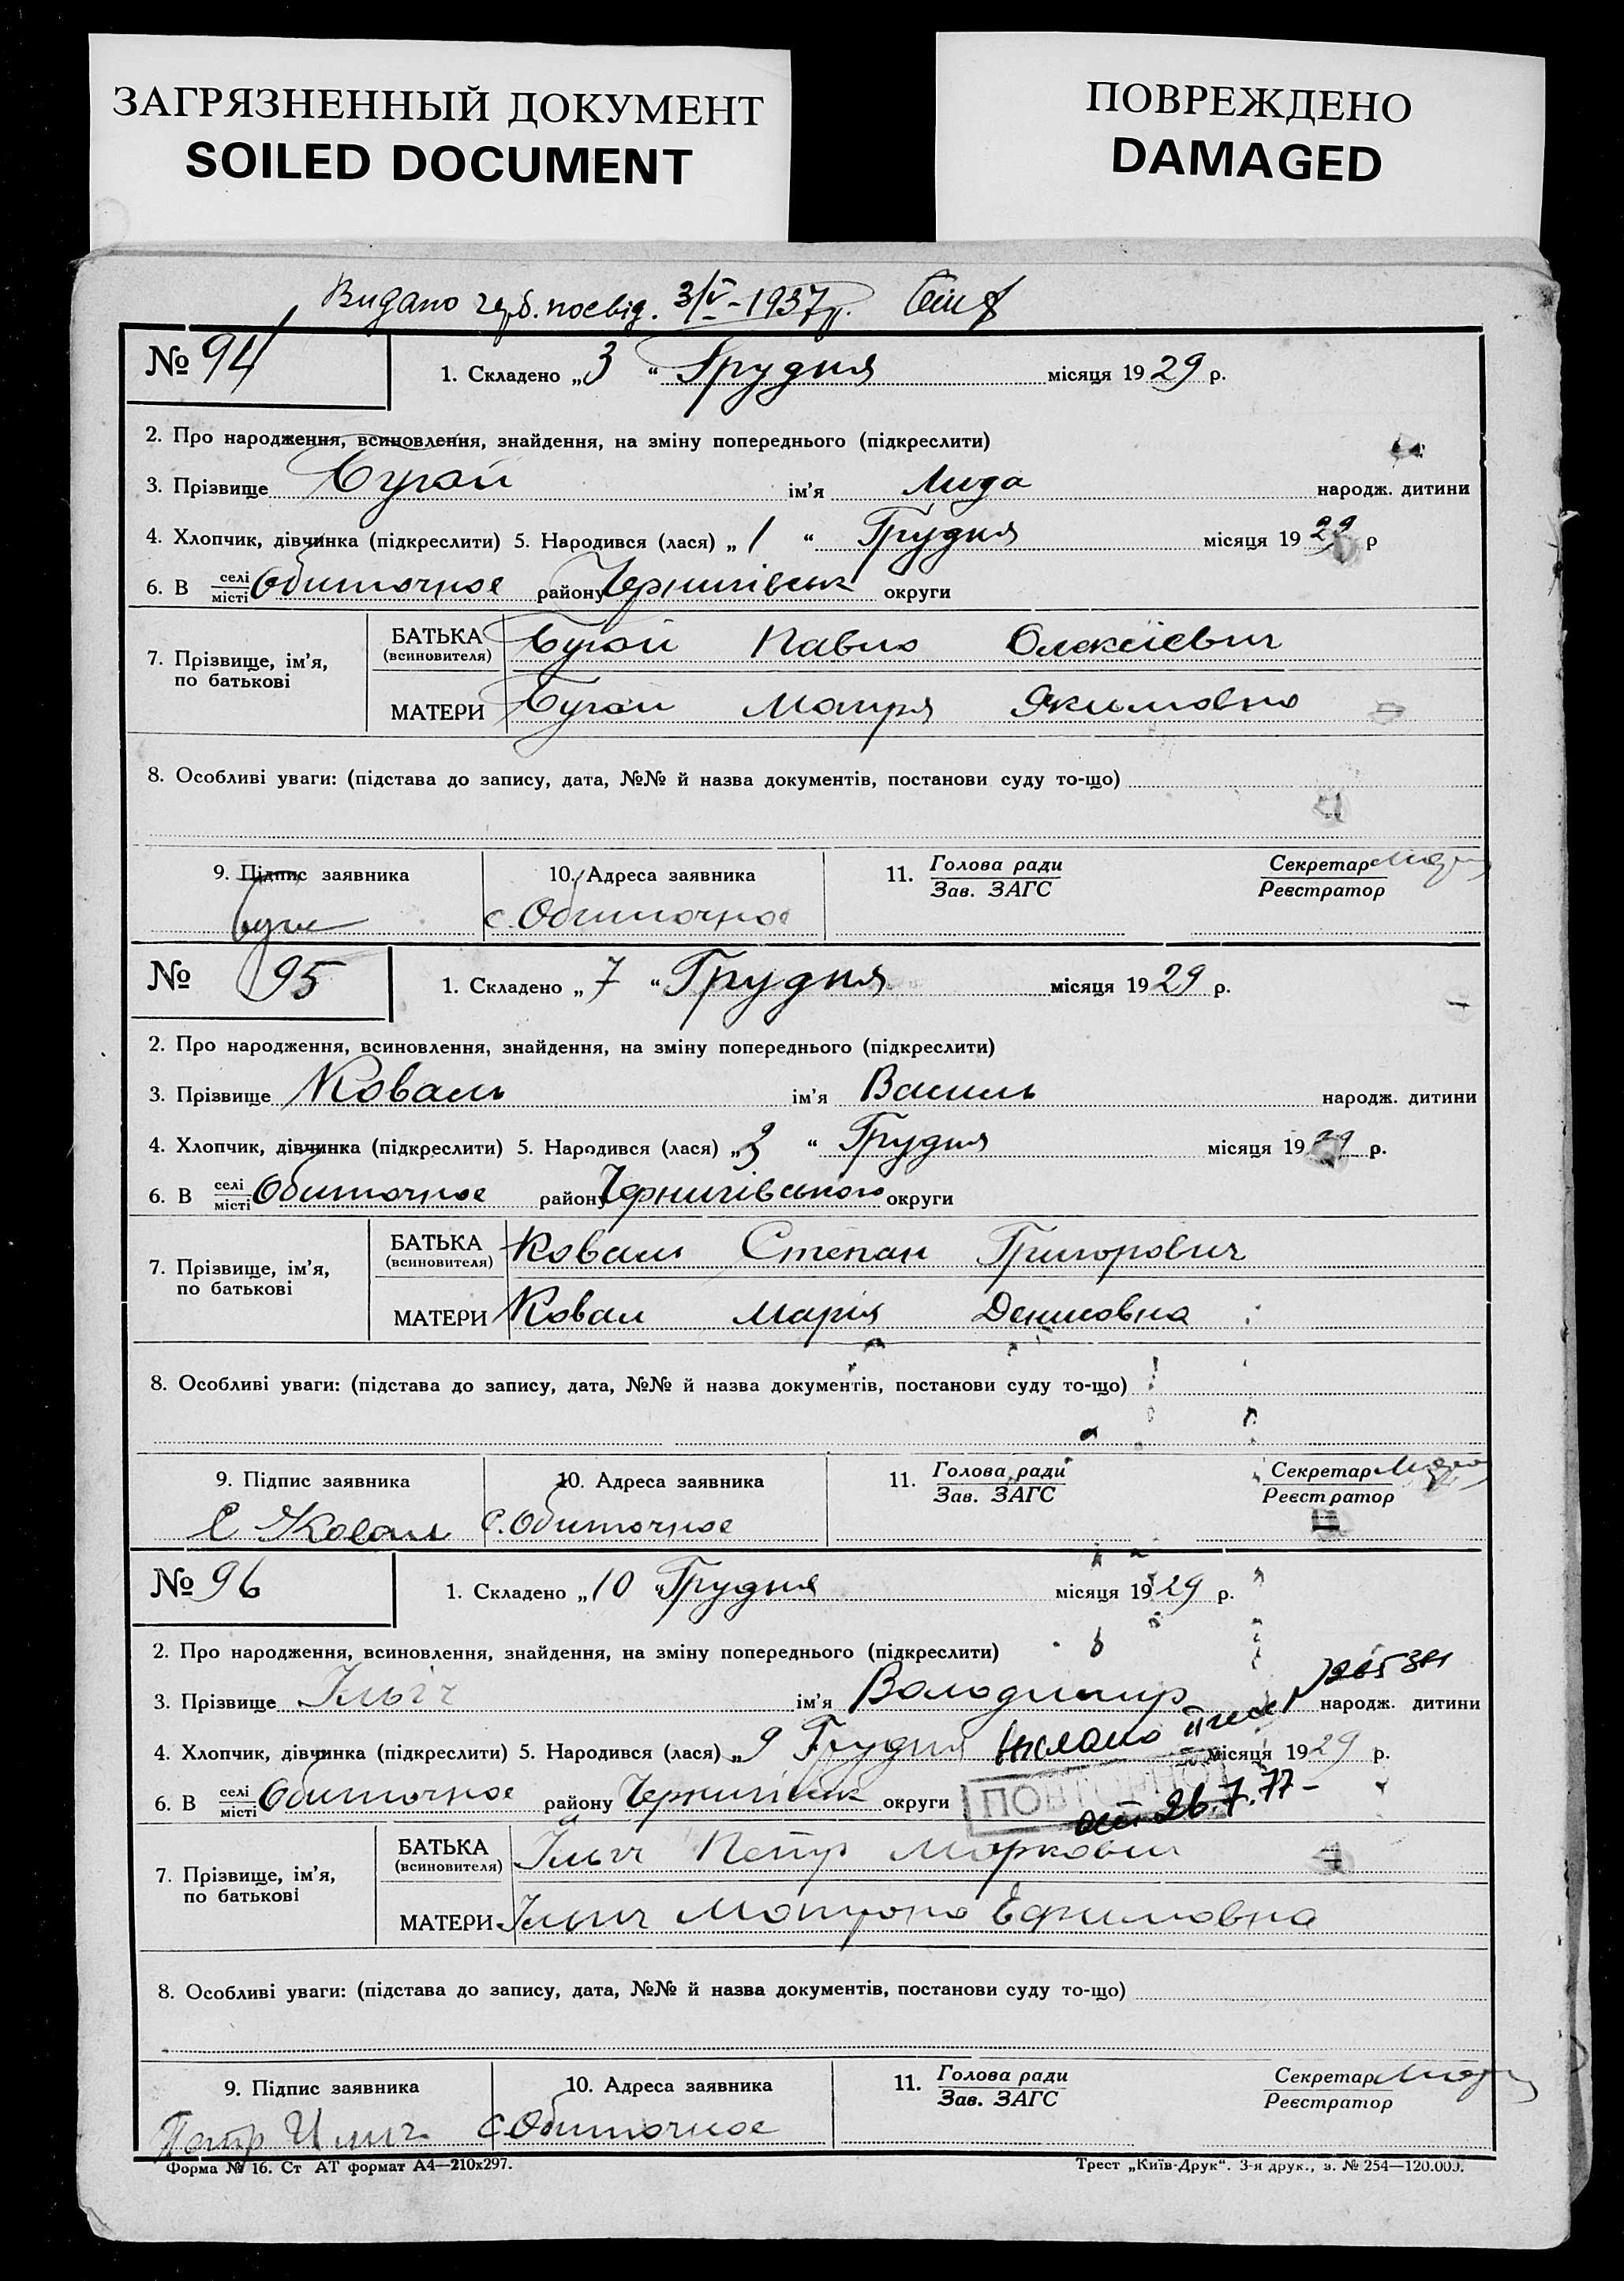 ЗАГРЯЗНЕННЫЙ ДОКУМЕНТ
SOILED DOCUMENT
ПОВРЕЖДЕНО
DAMAGED
Видано посвід. 3/V-1937р.
№ 94
1. Складено „3“ Грудня місяця 1929 р.
2. Про народження, всиновлення, знайдення, на зміну попереднього (підкреслити)
3. Прізвище Бугай ім'я Лида народж. дитини
4. Хлопчик, дівчинка (підкреслити) 5. Народився (лася) „1“ Грудня місяця 1929 р
6. В селі/місті Обиточное району Чернигівськ округи
7. Прізвище, ім'я, по батькові
БАТЬКА (всиновителя) Бугай Павло Олексієвич
МАТЕРИ Бугай Мотря Якимовна
8. Особливі уваги: (підстава до запису, дата, №№ й назва документів, постанови суду то-що)
9. Підпис заявника 10. Адреса заявника 11. Голова ради/Зав. ЗАГС Секретар/Реєстратор
с. Обиточное
№ 95
1. Складено „7“ Грудня місяця 1929 р.
2. Про народження, всиновлення, знайдення, на зміну попереднього (підкреслити)
3. Прізвище Коваль ім'я Василь народж. дитини
4. Хлопчик, дівчинка (підкреслити) 5. Народився (лася) „3“ Грудня місяця 1929 р.
6. В селі/місті Обиточное району Чернигівського округи
7. Прізвище, ім'я, по батькові
БАТЬКА (всиновителя) Коваль Степан Григорович
МАТЕРИ Ковал Марія Денисовна
8. Особливі уваги: (підстава до запису, дата, №№ й назва документів, постанови суду то-що)
9. Підпис заявника 10. Адреса заявника 11. Голова ради/Зав. ЗАГС Секретар/Реєстратор
С Ковал с. Обиточное
№ 96
1. Складено „10“ Грудня місяця 1929 р.
2. Про народження, всиновлення, знайдення, на зміну попереднього (підкреслити)
3. Прізвище Ільіч ім'я Володимир народж. дитини
4. Хлопчик, дівчинка (підкреслити) 5. Народився (лася) „9 Грудня місяця 1929 р.
6. В селі/місті Обиточное району Чернигівськ округи
ПОВТОРНО
26.7.77-
7. Прізвище, ім'я, по батькові
БАТЬКА (всиновителя) Ільіч Петр Маркович
МАТЕРИ Ільич Мотрона Ефимовна
8. Особливі уваги: (підстава до запису, дата, №№ й назва документів, постанови суду то-що)
9. Підпис заявника 10. Адреса заявника 11. Голова ради/Зав. ЗАГС Секретар/Реєстратор
Петр Илич с Обиточное
Форма № 16. Ст АТ формат А4—210x297.
Трест „Київ-Друк“. 3-я друк., з. № 254—120.000.